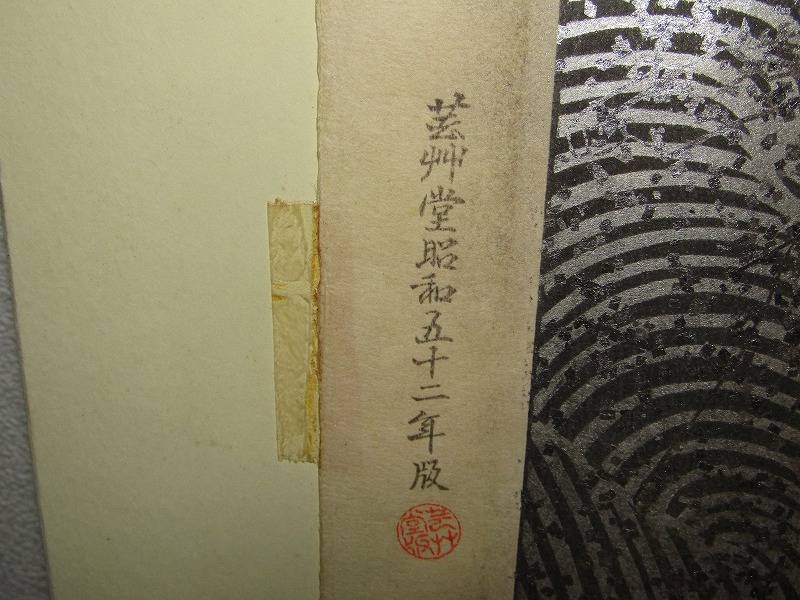 芸艸堂昭和五十二年版
芸艸堂版